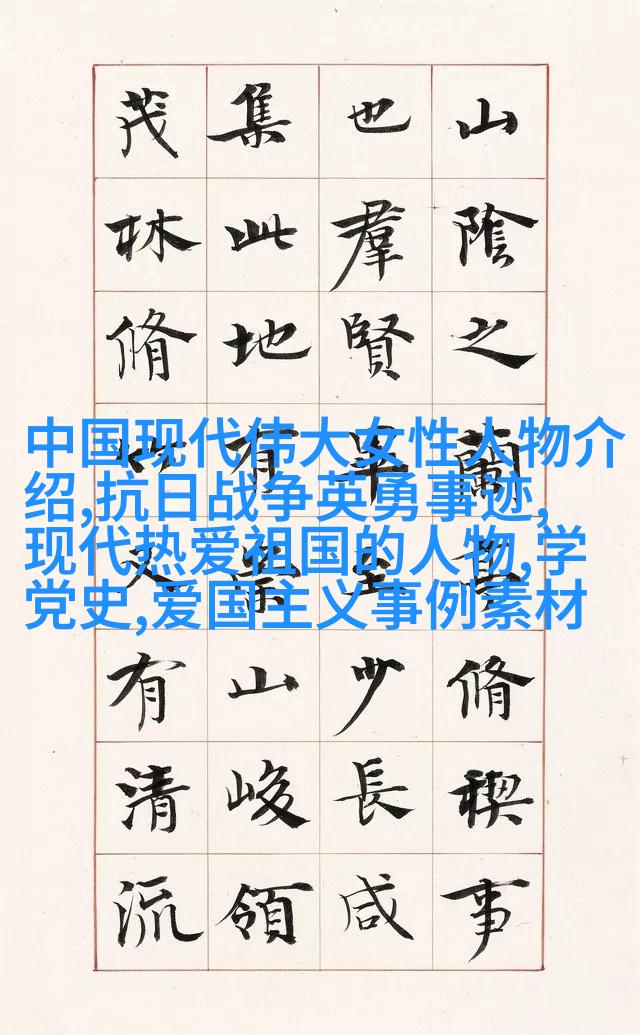 山陰之蘭亭脩稧事
也羣賢畢至少長咸
集此地有崇山峻領
茂林脩竹又有清流
中国现代伟大女性人物介
绍,抗日战争英勇事迹,
现代热爱祖国的人物,学
党史,爱国主义事例素材